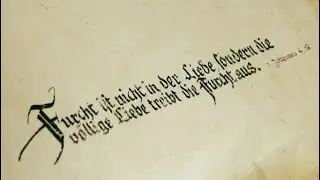 Furcht ist nicht in der Liebe sondern die
völlige Liebe treibt die Furcht aus. 1. Johannes 4, 18